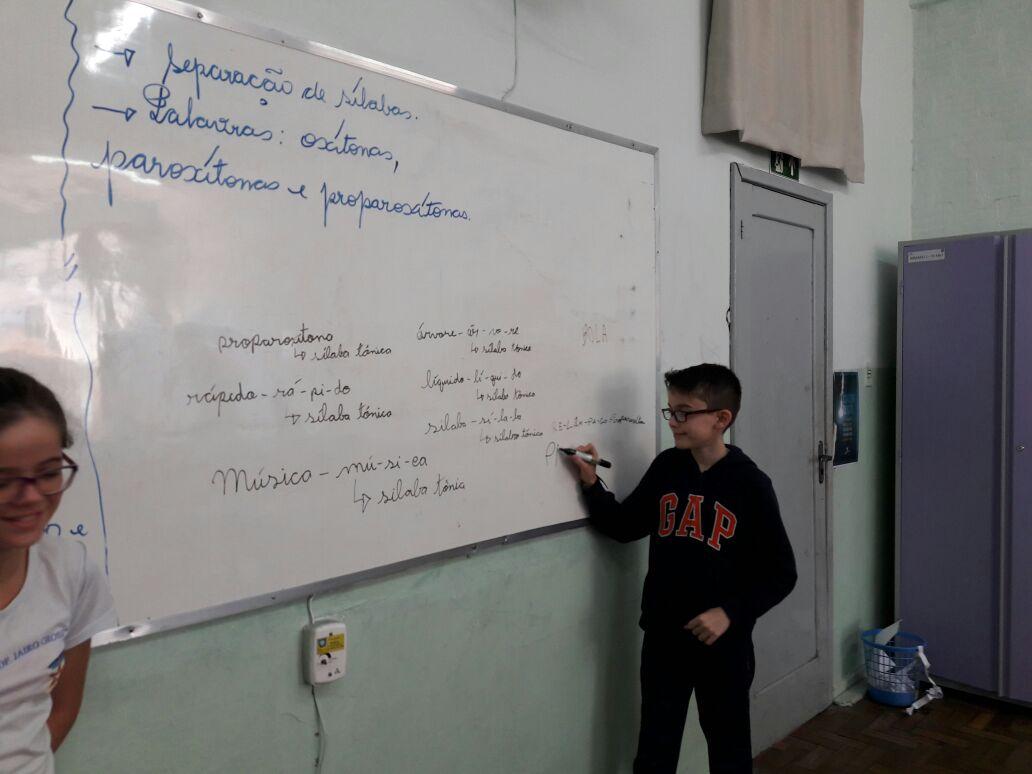 → Separação de sílabas.
→ Palavras: oxítonas,
paroxítonas e proparoxítonas.
proparoxítona
↳ sílaba tônica
rápida - rá - pi - do
↳ sílaba tônica
Música - mú - si - ca
↳ sílaba tônia
árvore - ár - vo - re
↳ sílaba tônica
líquido - lí - qui - do
↳ sílaba tônica
sílaba - sí - la - ba
↳ sílaba tônica
BOLA
GAP